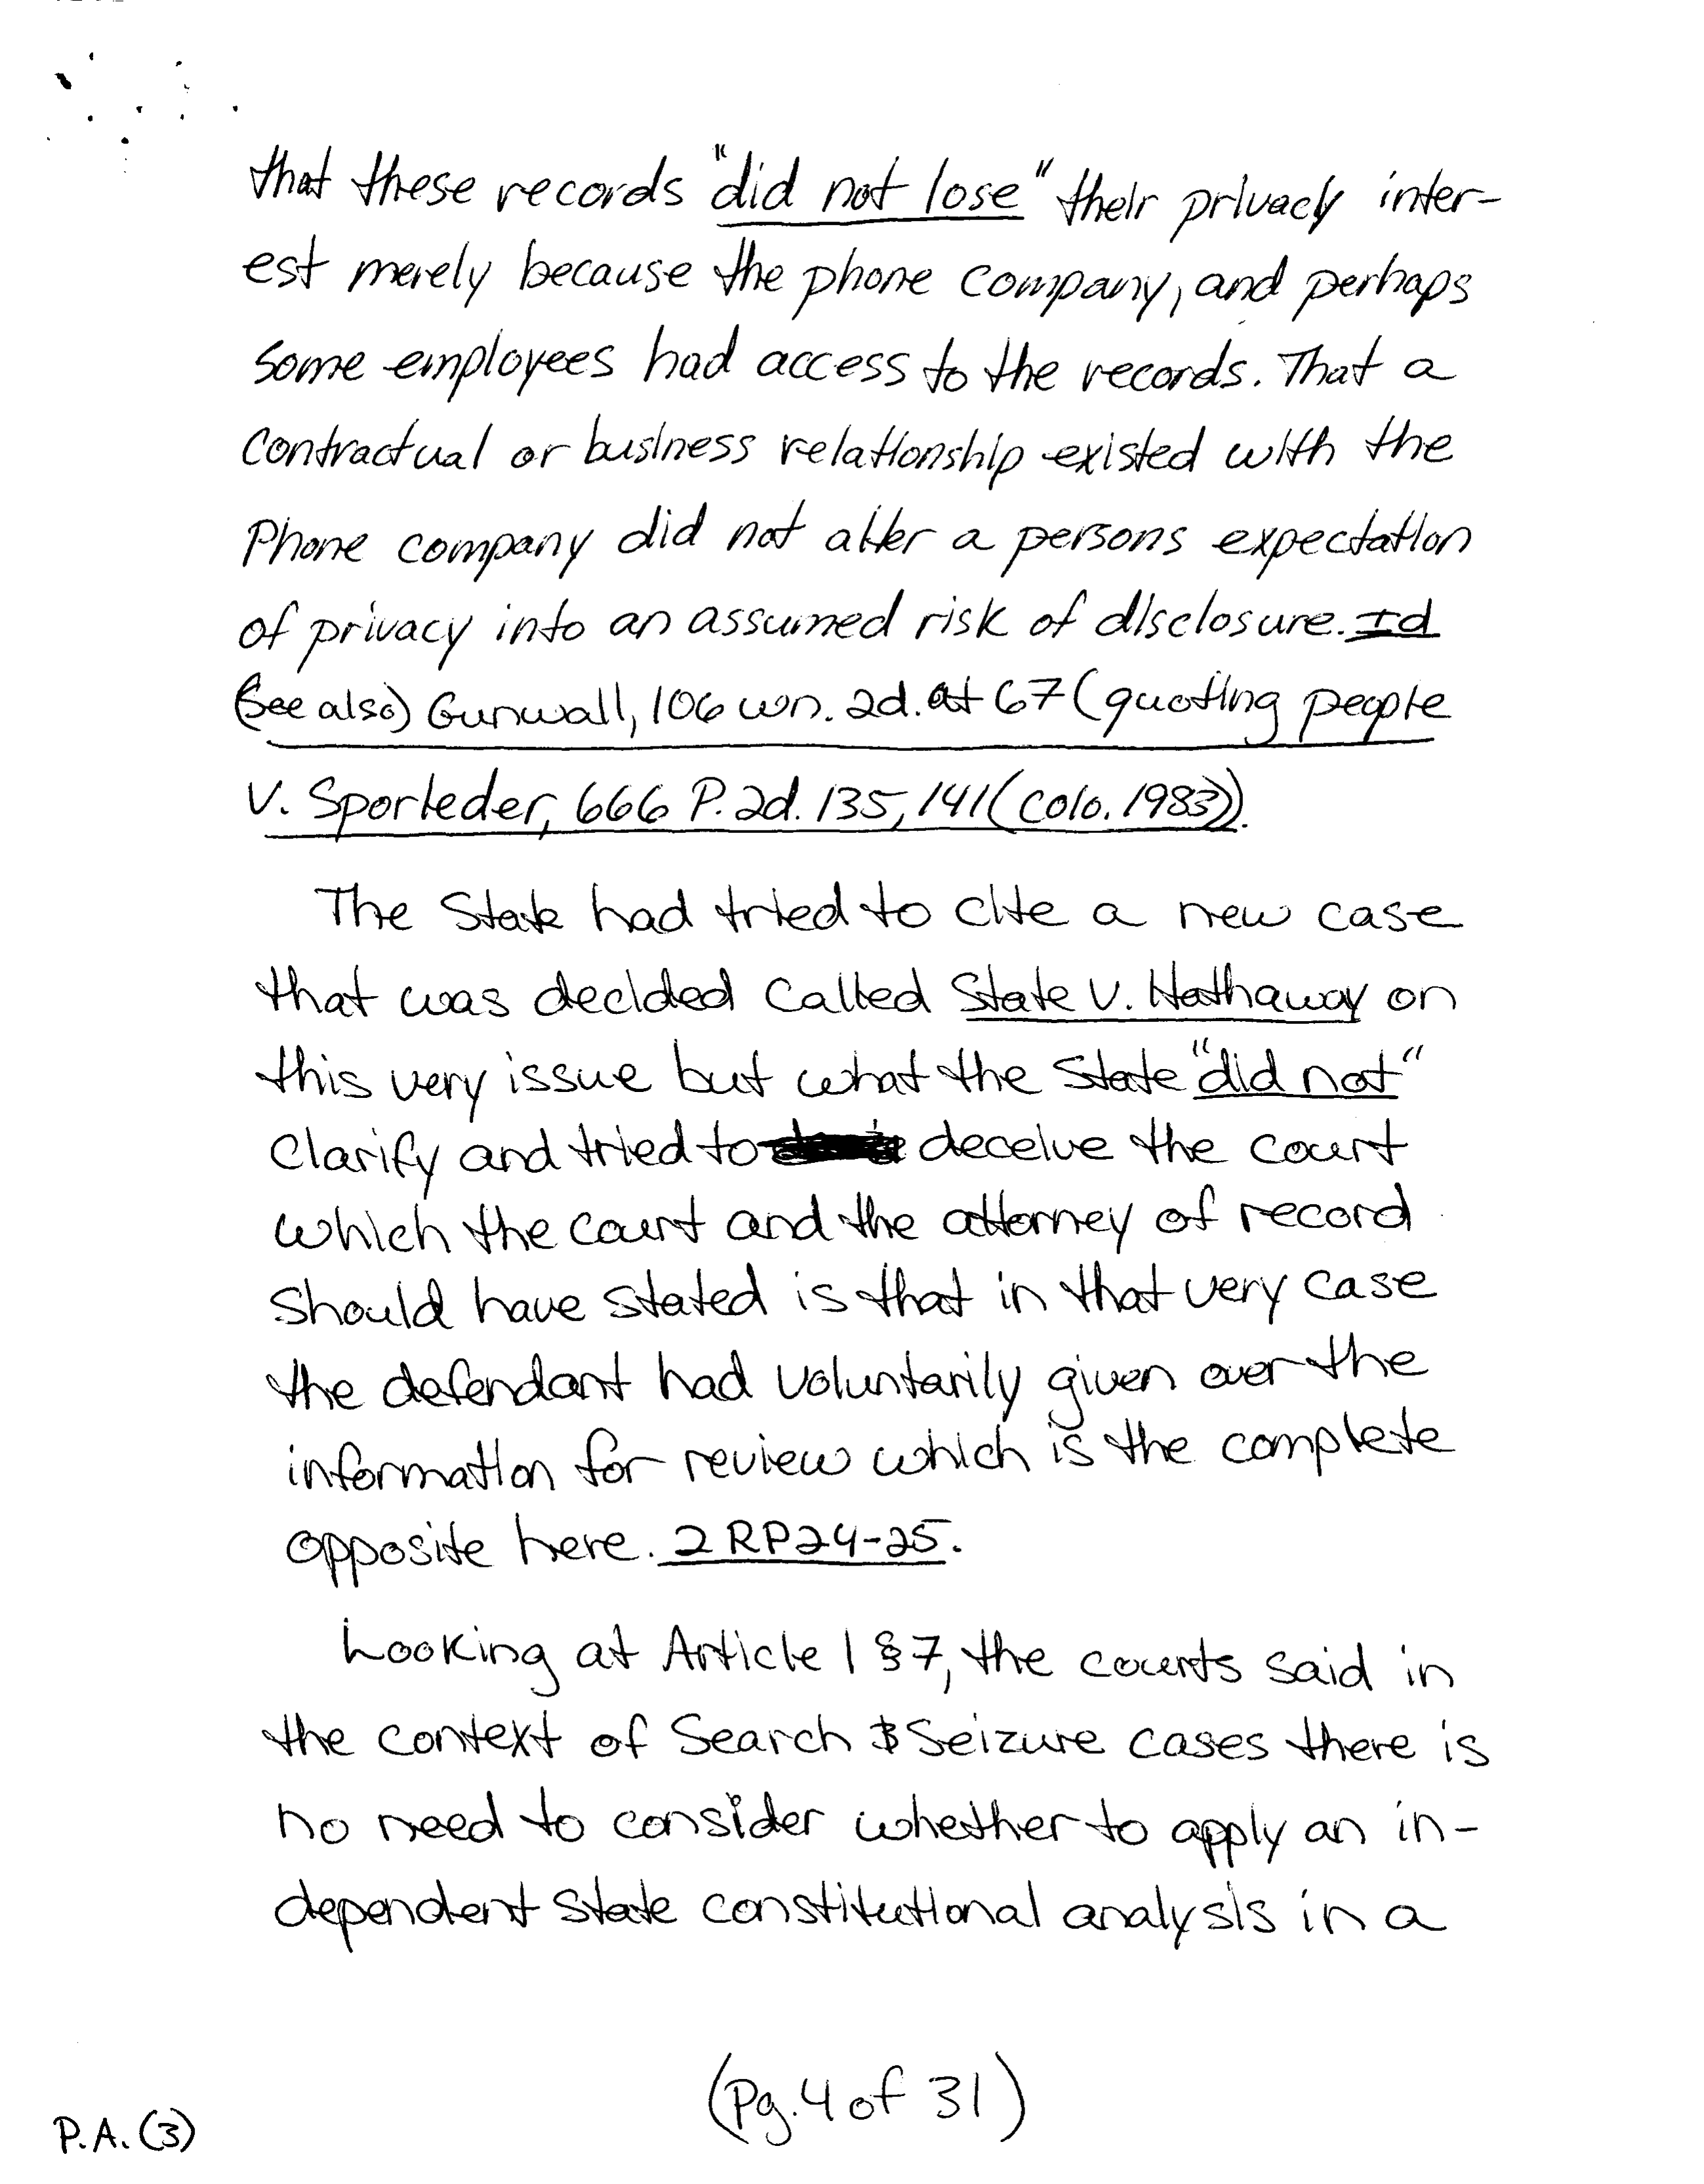 that these records "did not lose" their privacy inter-
est merely because the phone company, and perhaps
some employees had access to the records. That a
contractual or business relationship existed with the
Phone company did not alter a persons expectation
of privacy into an assumed risk of disclosure. Id
(See also) Gunwall, 106 wn. 2d. at 67 (quoting people
V. Sporleder, 666 P. 2d. 135, 141 (Colo. 1983)).
The State had tried to cite a new case
that was decided called State V. Hathaway on
this very issue but what the State "did not"
Clarify and tried to deceive the court
which the court and the attorney of record
should have stated is that in that very case
the defendant had voluntarily given over the
information for review which is the complete
opposite here. 2 RP24-25.
Looking at Article 1 §7, the courts said in
the context of Search & Seizure cases there is
no need to consider whether to apply an in-
dependent State constitutional analysis in a
(Pg. 4 of 31)
P.A. (3)